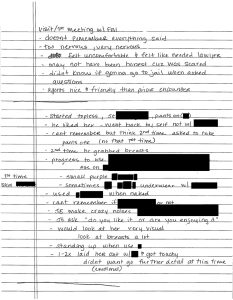 Visit/1st meeting w/ FBI
- doesnt remember everything said
- too nervous, very nervous
- felt uncomfortable & felt like needed lawyer
- may not have been honest cuz was scared
- didnt know if gonna go to jail when asked questions
- agents nice & friendly than prior encounter
- Started topless, se pants on
- he liked her - went back by self not w/
- cant remember but think 2nd time asked to take pants off (no that 1st time)
- 2nd time he grabbed breasts
- progress to use
use on
1st time
- small purple
- sometimes underwear w/
- used when naked
- cant remember if or not
- JE make crazy noises
- JE ask "do you like it or are you enjoying"
- would look at her very visual
look at breasts a lot
- standing up when use
- 1-2x laid her out w/ & got touchy
didnt want go further detail at this time